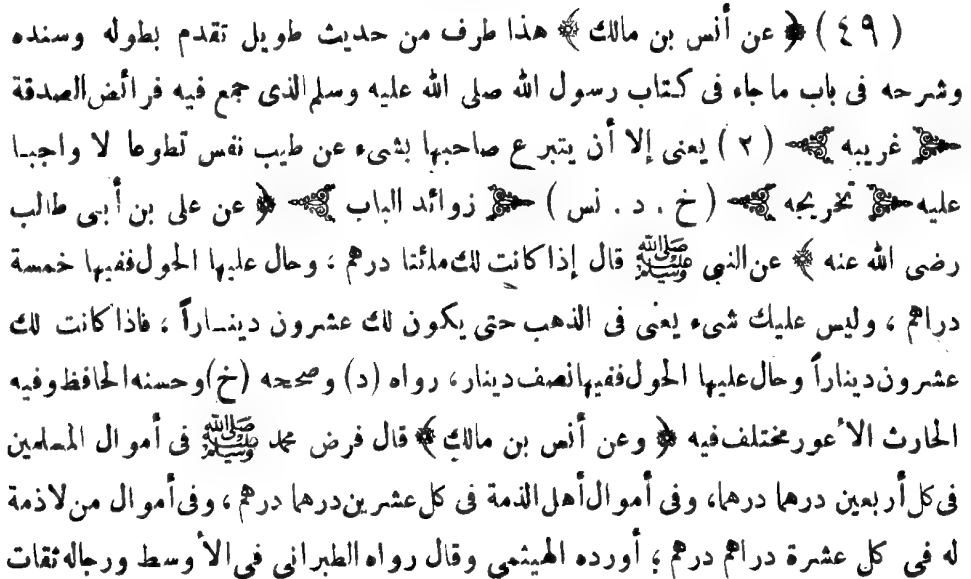 ( ٤٩ ) ﴿ عن أنس بن مالك ﴾ هذا طرف من حديث طويل تقدم بطوله وسنده
وشرحه فى باب ما جاء فى كتاب رسول الله صلى الله عليه وسلم الذى جمع فيه فرائض الصدقة
غريبه ( ٢ ) يعنى إلا أن يتبرع صاحبها بشىء عن طيب نفس تطوعا لا واجبا
عليه تخريجه ( خ . د . نس ) زوائد الباب ﴿ عن على بن أبى طالب
رضى الله عنه ﴾ عن النبي ﷺ قال إذا كانت لك مائتا درهم ؛ وحال عليها الحول ففيها خمسة
دراهم ، وليس عليك شىء يعنى فى الذهب حتى يكون لك عشرون دينــاراً ؛ فاذا كانت لك
عشرون ديناراً وحال عليها الحول ففيها نصف دينار، رواه (د) وصححه (خ) وحسنه الحافظ وفيه
الحارث الأعور مختلف فيه ﴿ وعن أنس بن مالك ﴾ قال فرض محمد ﷺ فى أموال المسلمين
فى كل أربعين درهما درهما، وفى أموال أهل الذمة فى كل عشرين درهما درهم ، وفى أموال من لاذمة
له فى كل عشرة دراهم درهم ؛ أورده الهيثمى وقال رواه الطبرانى فى الأوسط ورجاله ثقات